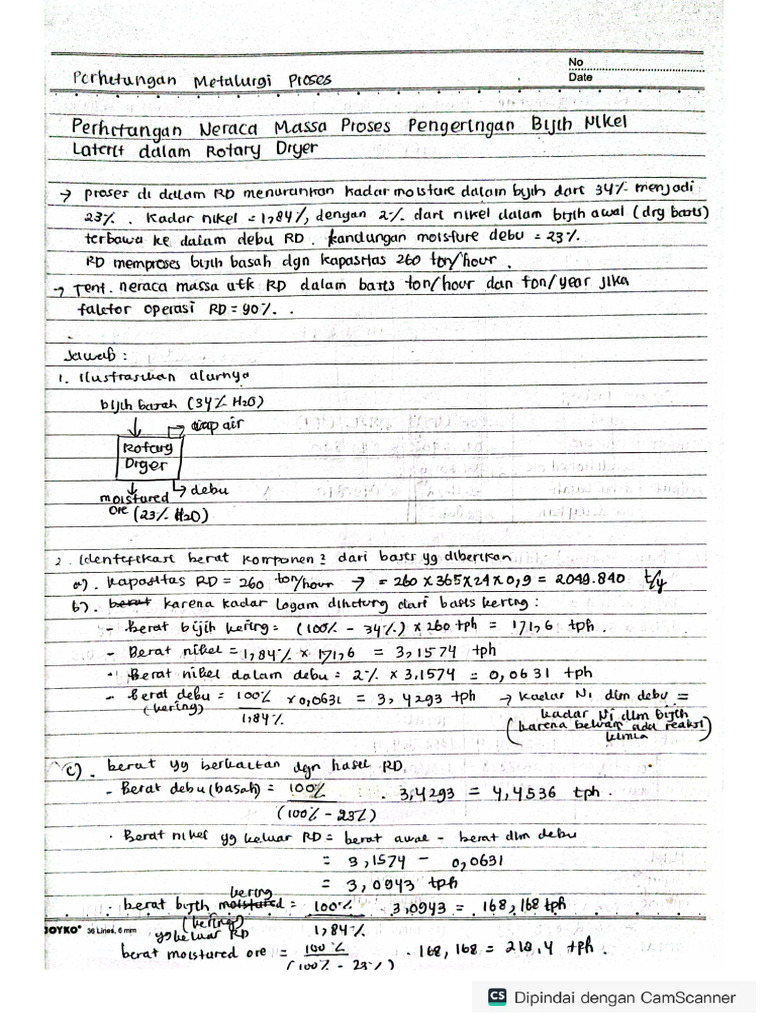 No
Date
Perhitungan Metalurgi Proses
Perhitungan Neraca Massa Proses Pengeringan Bijih Nikel
Laterit dalam Rotary Dryer
→ Proses di dalam RD menurunkan kadar moisture dalam bijih dari 34% menjadi
23%. Kadar nikel = 1,84%, dengan 2% dari nikel dalam bijih awal (dry basis)
terbawa ke dalam debu RD. Kandungan moisture debu = 23%.
RD memproses bijih basah dgn kapasitas 260 ton/hour.
→ Tent. neraca massa utk RD dalam basis ton/hour dan ton/year jika
faktor operasi RD = 90%.
Jawab :
1. Ilustrasikan alurnya
bijih basah (34% H2O)
uap air
Rotary
Dryer
debu
moistured
ore (23% H2O)
2. Identifikasi berat komponen² dari basis yg diberikan
a). Kapasitas RD = 260 ton/hour → = 260 x 365 x 24 x 0,9 = 2049.840 t/y
b). berat karena kadar logam dihitung dari basis kering :
- Berat bijih kering = (100% - 34%) x 260 tph = 171,6 tph.
- Berat nikel = 1,84% x 171,6 = 3,1574 tph
- Berat nikel dalam debu = 2% x 3,1574 = 0,0631 tph
- Berat debu (kering) = 100% / 1,84% x 0,0631 = 3,4293 tph → Kadar Ni dlm debu =
kadar Ni dlm bijih
(karena belum ada reaksi
kimia)
c). berat yg berkaitan dgn hasil RD.
- Berat debu (basah) = 100% / (100% - 23%) . 3,4293 = 4,4536 tph.
· Berat nikel yg keluar RD = berat awal - berat dlm debu
= 3,1574 - 0,0631
= 3,0943 tph
· berat bijih moistured kering = 100% / 1,84% 3,0943 = 168,168 tph
(kering)
yg keluar RD
berat moistured ore = 100% / (100% - 23%) . 168,168 = 218,4 tph.
JOYKO® 36 Lines, 6 mm
CS Dipindai dengan CamScanner